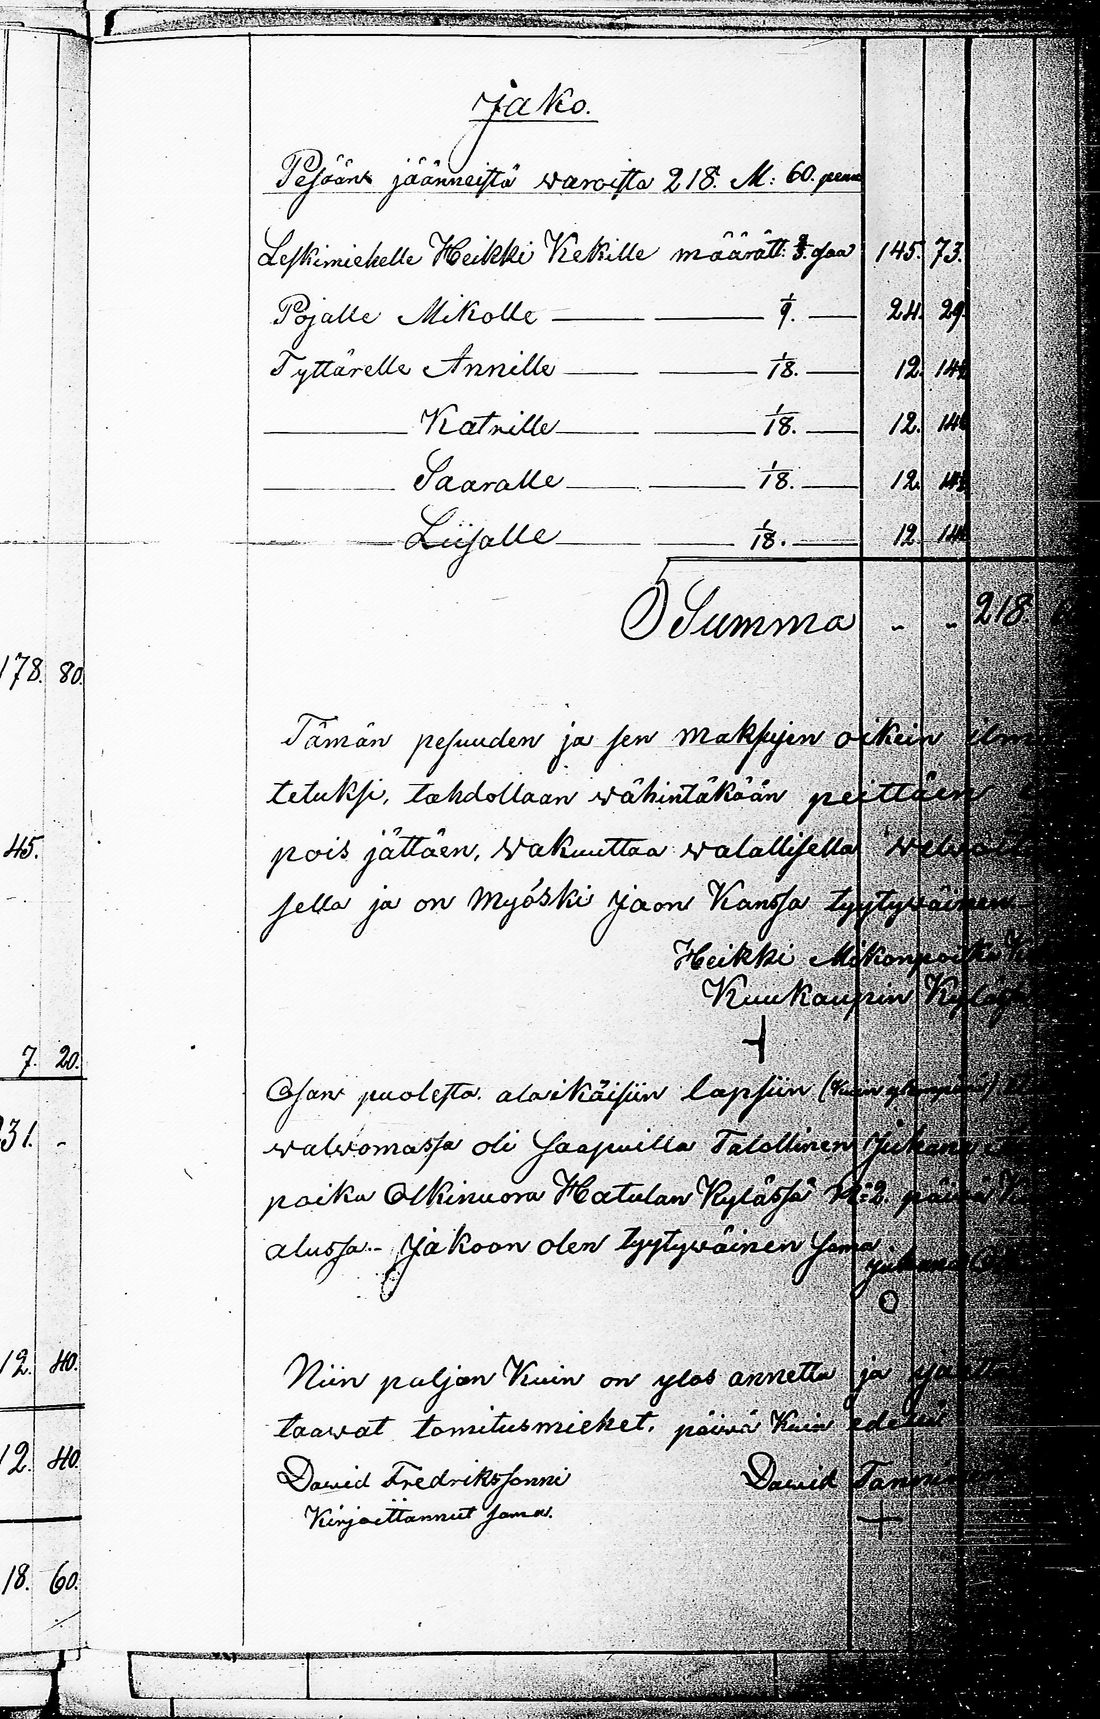 Jako.
Pesään jäänneistä waroista 218. M: 60. penni
Leskimiehelle Heikki Kekille määrätt: 2/3. osaa 145. 73.
Pojalle Mikolle 1/9. 24. 29.
Tyttärelle Annille 1/18. 12. 14½
Katrille 1/18. 12. 14½
Saaralle 1/18. 12. 14½
Liisalle 1/18. 12. 14½
Summa „ „ 218.
178. 80.
Tämän pesuuden ja sen maksujen oikein
tetuksi, tahdollaan wähintäkään peittäen
45.
pois jättäen, wakuuttaa walallisella
sella ja on myöski jaon Kanssa tyytywäinen
Heikki Mikonpoika
Kuukaupin Kylästä
7. 20.
Osan puolesta alaikäisiin lapsiin
31. -
walwomassa oli saapuilla Talollinen Juhana
poika Olkinuora Hatulan Kylässä No 2. päivä
alussa.- Jakoon olen tyytywäinen sama
Juhana
12. 40.
Niin paljon Kuin on ylös annettu ja
taawat tomitusmiehet. päivä Kuin edellä
12. 40.
Dawid Fredrikssonni Dawid
Kirjoittannut sama.
18. 60.